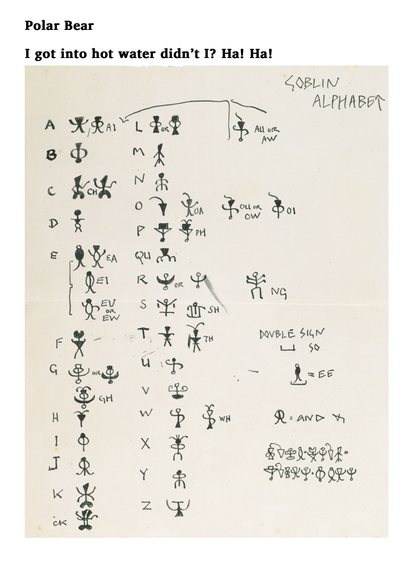 Polar Bear
I got into hot water didn't I? Ha! Ha!
GOBLIN
ALPHABET
A AI
B
C CH
D
E EA
EI
EU
OR
EW
F
G OR
GH
H
I
J
K
CK
L OR
M
N
O OA
P PH
QU
R OR
S SH
T TH
U
V
W WH
X
Y
Z
AU OR
AW
OU OR
OW
OI
NG
DOUBLE SIGN
SO
= EE
= AND